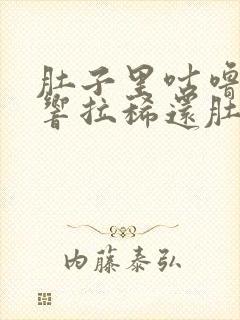 肚子里咕噜
響拉稀還肚
内藤泰弘